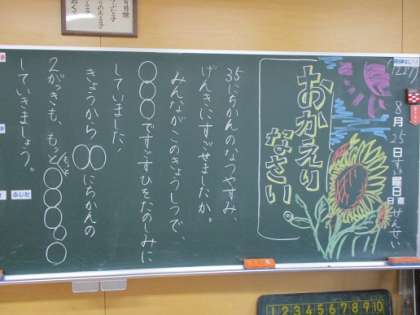 8月25日すいよう日
せんせい
おかえり
なさい。
35にちかんのなつやすみ、
げんきにすごせましたか。
みんながこのきょうしつで、
○○○ですごすひをたのしみに
していました!
きょうから○○にちかんの
2がっき
2がっきも、もっと○○○○○
していきましょう。
1 2 3 4 5 6 7 8 9 10